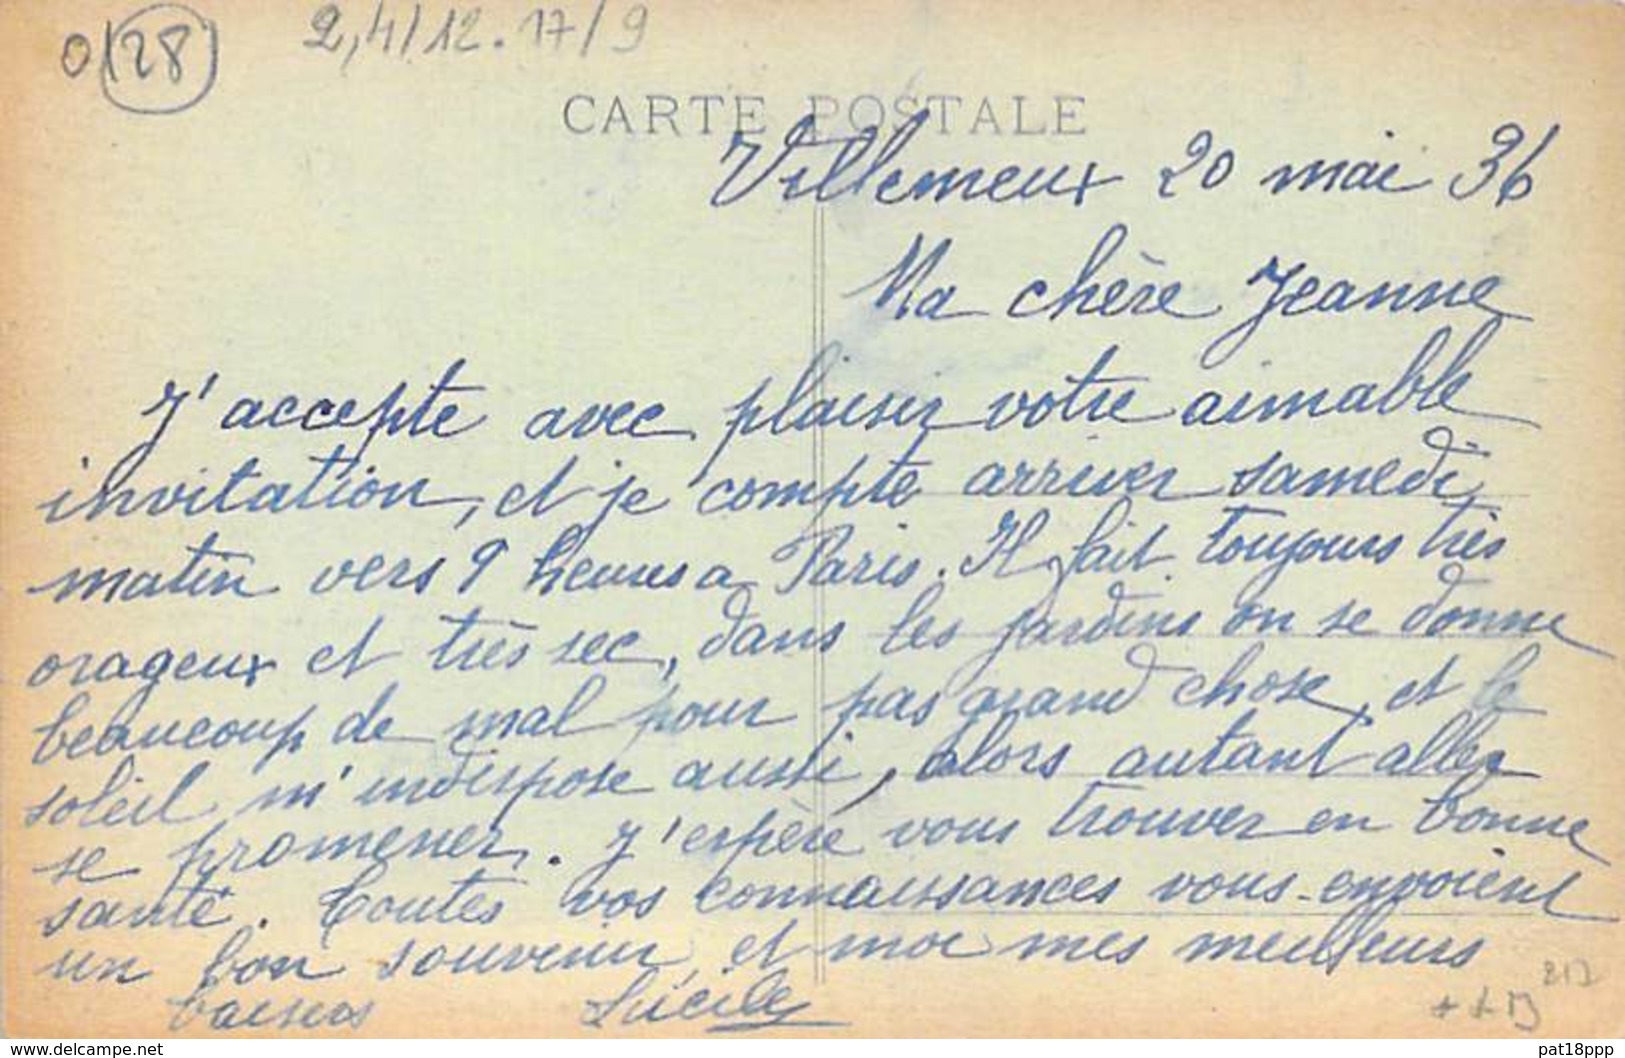 0/28
2,4/12.17/9
CARTE POSTALE
Villemeux 20 mai 36
Ma chère Jeanne
J'accepte avec plaisir votre aimable
invitation, et je compte arriver samedi
matin vers 9 heures a Paris. Il fait toujours très
orageux et très sec, dans les jardins on se donne
beaucoup de mal pour pas grand chose, et le
soleil m'indispose aussi, alors autant aller
se promener. J'espère vous trouver en bonne
santé. Toutes vos connaissances vous envoient
un bon souvenir, et moi mes meilleurs
baisers Lucile
delcampe.net
pat18ppp